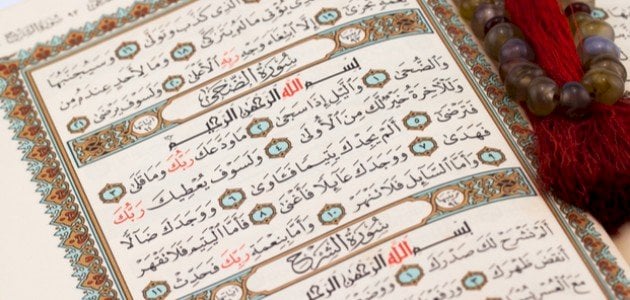 الَّذِى كَذَّبَ وَتَوَلَّىٰ ١٦ وَسَيُجَنَّبُهَا
يُؤْتِى مَالَهُ يَتَزَكَّىٰ ١٨ وَمَا لِأَحَدٍ عِندَهُ مِن
تُجْزَىٰ ١٩ إِلَّا ابْتِغَاءَ وَجْهِ رَبِّهِ الْأَعْلَىٰ ٢٠ وَلَسَوْفَ يَرْضَىٰ ٢١
سُورَةُ الضُّحَىٰ
بِسْمِ اللَّهِ الرَّحْمَٰنِ الرَّحِيمِ
وَالضُّحَىٰ ١ وَالَّيْلِ إِذَا سَجَىٰ ٢ مَا وَدَّعَكَ رَبُّكَ وَمَا قَلَىٰ ٣
وَلَلْآخِرَةُ خَيْرٌ لَّكَ مِنَ الْأُولَىٰ ٤ وَلَسَوْفَ يُعْطِيكَ رَبُّكَ
فَتَرْضَىٰ ٥ أَلَمْ يَجِدْكَ يَتِيمًا فَـَٔاوَىٰ ٦ وَوَجَدَكَ ضَآلًّا
فَهَدَىٰ ٧ وَوَجَدَكَ عَآئِلًا فَأَغْنَىٰ ٨ فَأَمَّا الْيَتِيمَ فَلَا تَقْهَرْ ٩
وَأَمَّا السَّآئِلَ فَلَا تَنْهَرْ ١٠ وَأَمَّا بِنِعْمَةِ رَبِّكَ فَحَدِّثْ ١١
سُورَةُ الشَّرْحِ
بِسْمِ اللَّهِ الرَّحْمَٰنِ الرَّحِيمِ
أَلَمْ نَشْرَحْ لَكَ صَدْرَكَ ١
أَنقَضَ ظَهْرَكَ ٣